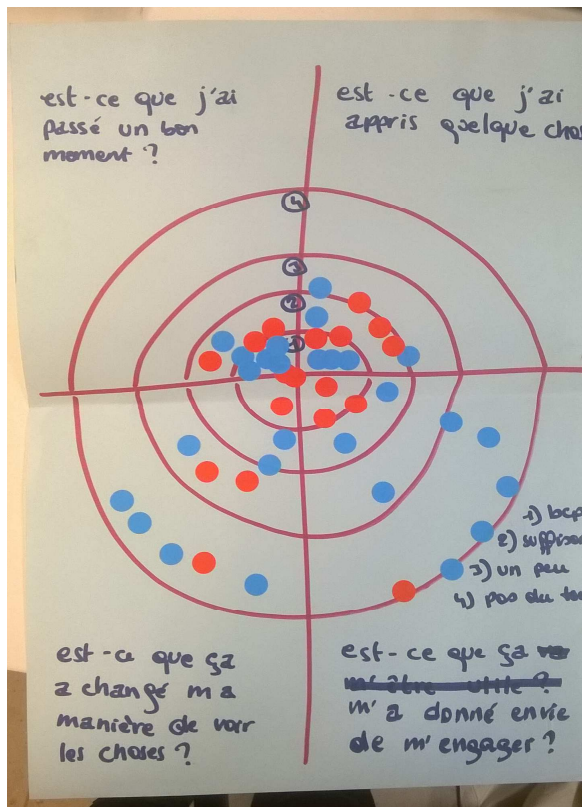 est-ce que j'ai
passé un bon
moment ?
est-ce que j'ai
appris quelque chos
4
3
2
1
1) bcp
2) suffisa
3) un peu
4) pas du to
est-ce que ça
a changé ma
manière de voir
les choses ?
est-ce que ça
m'être utile ?
m'a donné envie
de m'engager ?